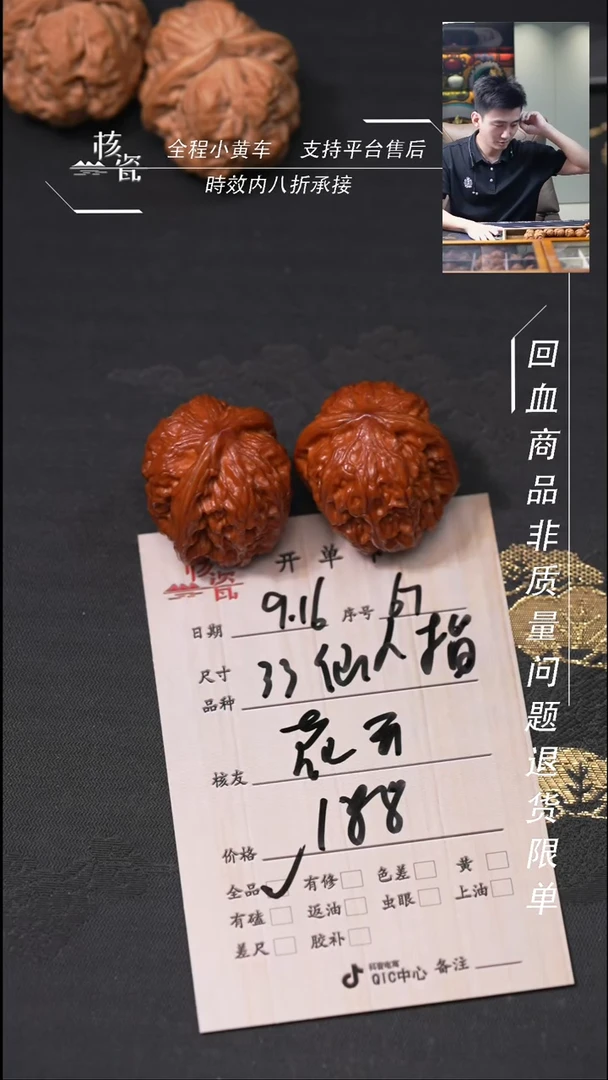 核瓷
全程小黄车 支持平台售后
時效内八折承接
回血商品非质量问题退货限单
核瓷
开单卡
日期 9.16 序号 67
尺寸 33仙人指
品种
核友 花开
价格 188
全品 ✓ 有修 色差 黄
有磕 返油 虫眼 上油
差尺 胶补
抖音电商
QIC中心 备注